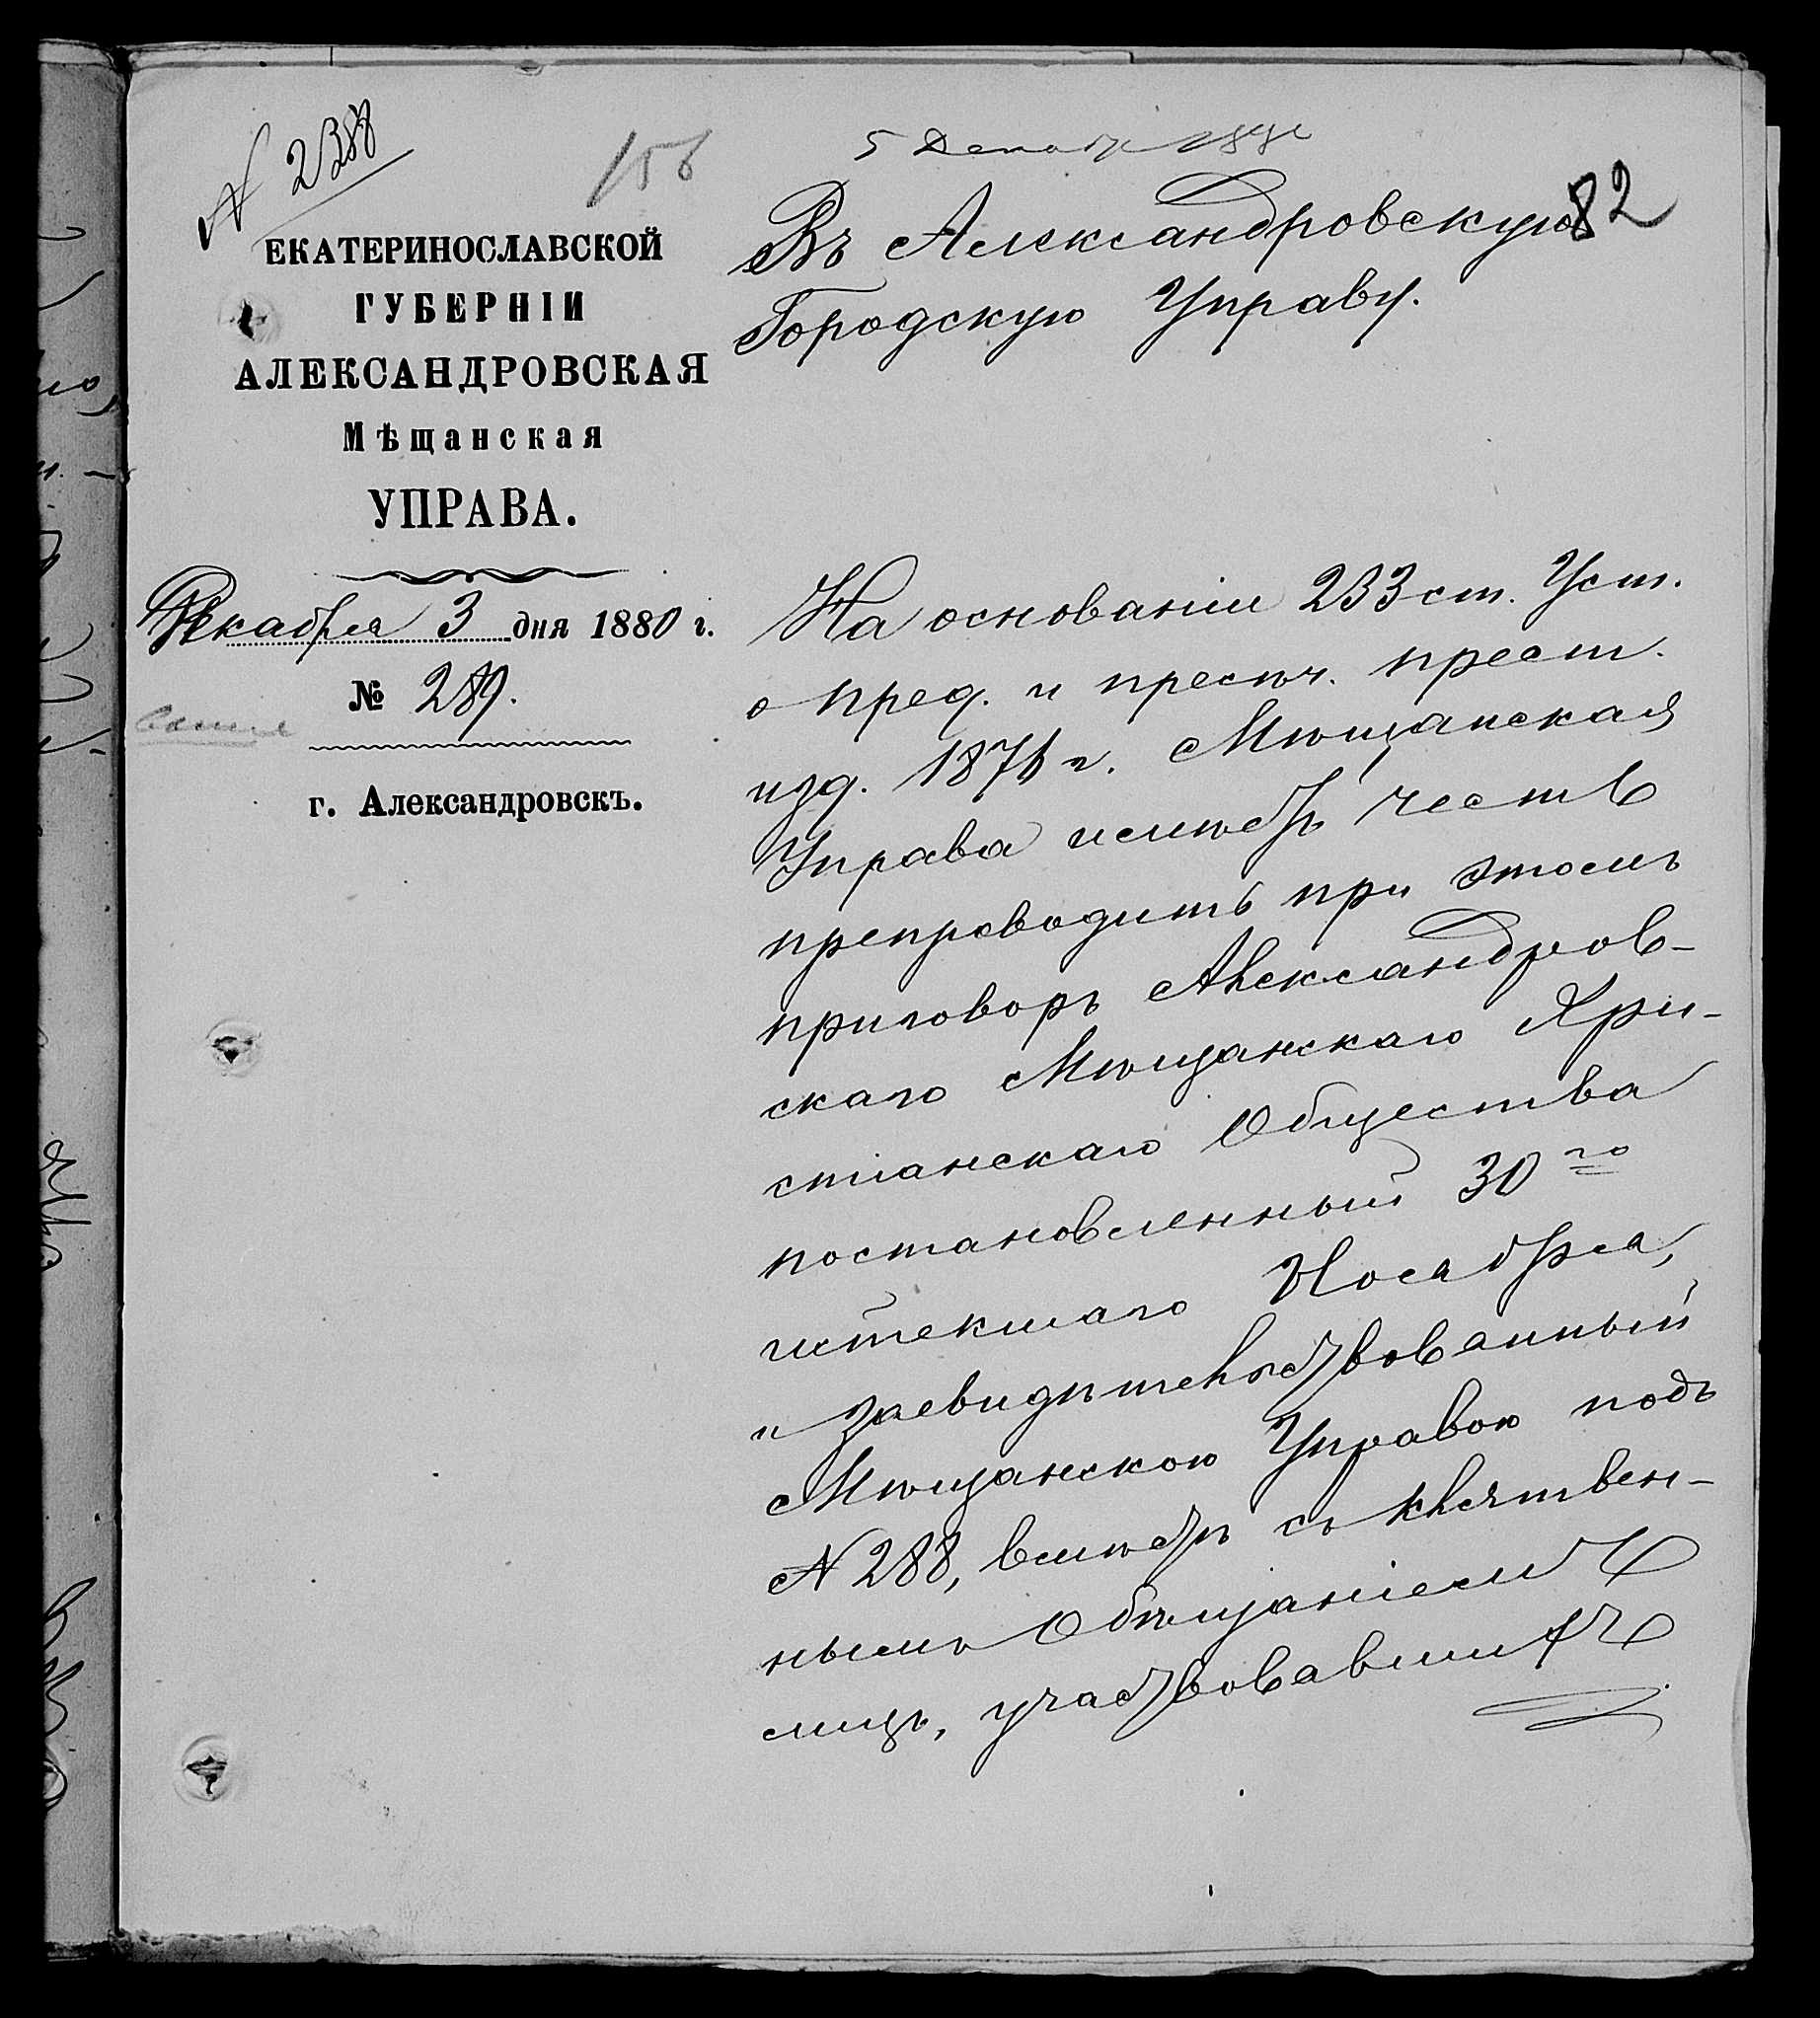 N 2388
156
5 Декабр 188
82
ЕКАТЕРИНОСЛАВСКОЙ
ГУБЕРНІИ
АЛЕКСАНДРОВСКАЯ
Мѣщанская
УПРАВА.
Декабря 3 дня 1880 г.
№ 289.
г. Александровскъ.
Въ Александровскую
Городскую Управу.
На основаніи 233 ст. Уст.
о пред. и пресѣч. прест.
изд. 1876 г. Мѣщанская
Управа имѣетъ честь
препроводить при этомъ
приговоръ Александров-
скаго Мѣщанскаго Хри-
стіанскаго Общества
постановленный 30го
истекшаго Ноября,
и засвидѣтельствованный
Мѣщанскою Управою подъ
N 288, вмѣстѣ съ клятвен-
нымъ Обѣщаніемъ
лицъ, участвовавшихъ